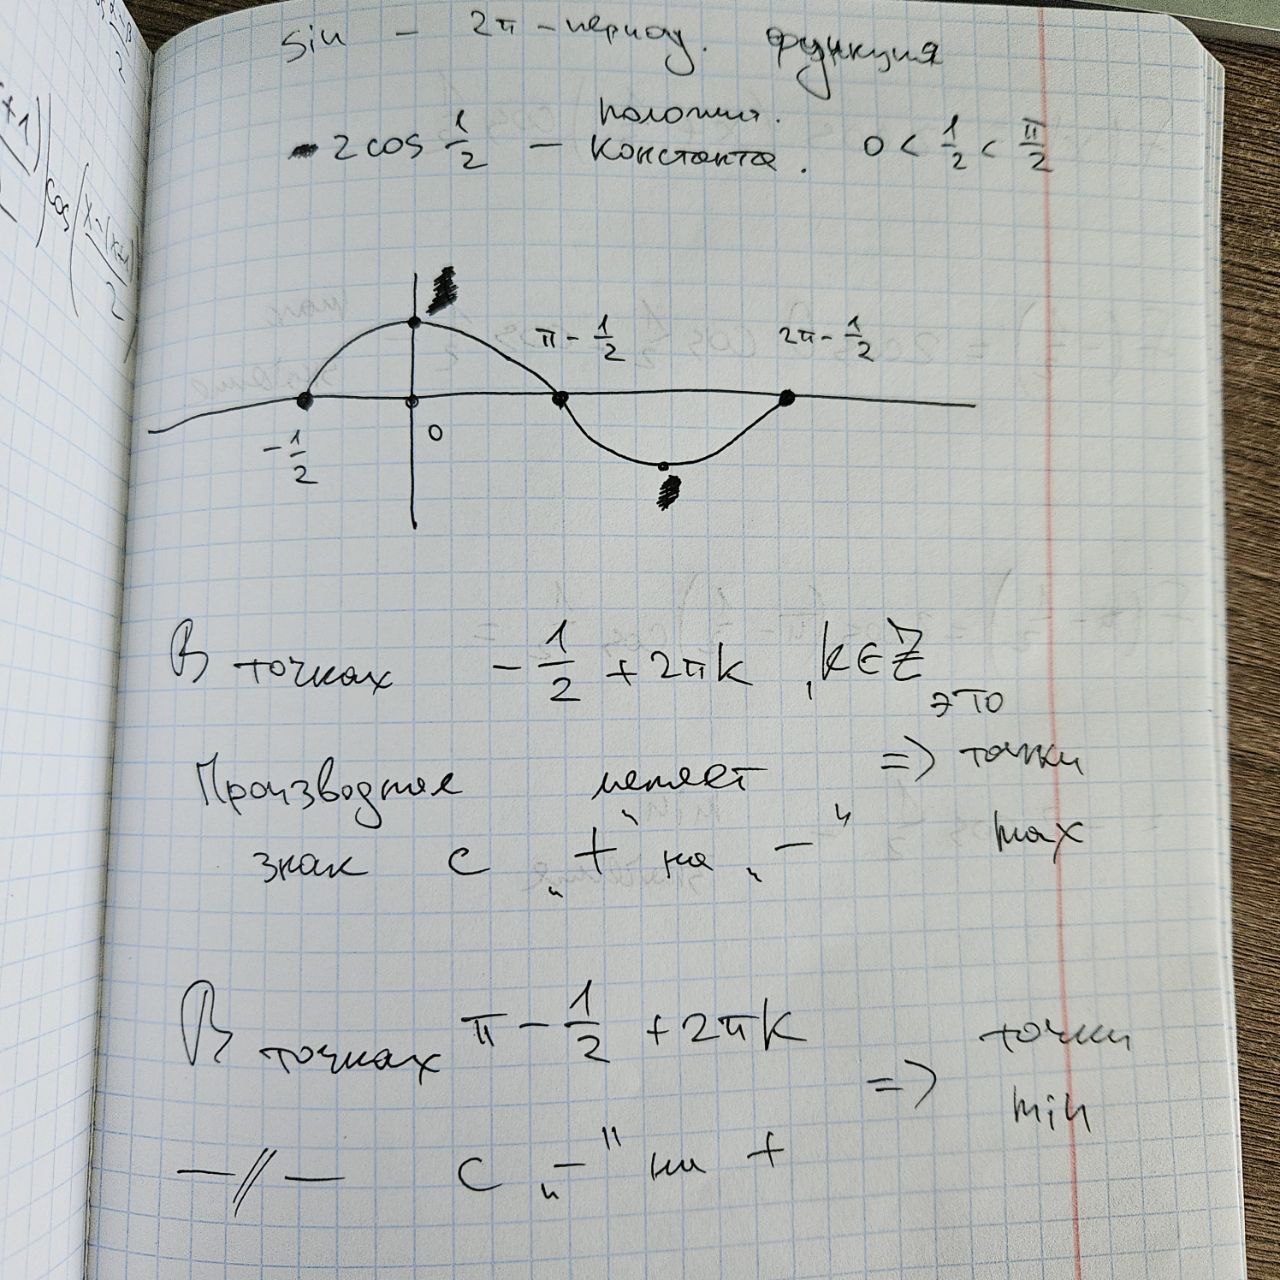 sin - 2π - период. функция
полотит.
-2cos 1/2 - константа. 0 < 1/2 < π/2
π - 1/2 2π - 1/2
-1/2 0
В точках -1/2 + 2πk, k∈ℤ
это
Производная меняет => точки
знак с „+“ на „-“ max
В точках π - 1/2 + 2πk => точки
min
—//— с „-" на +